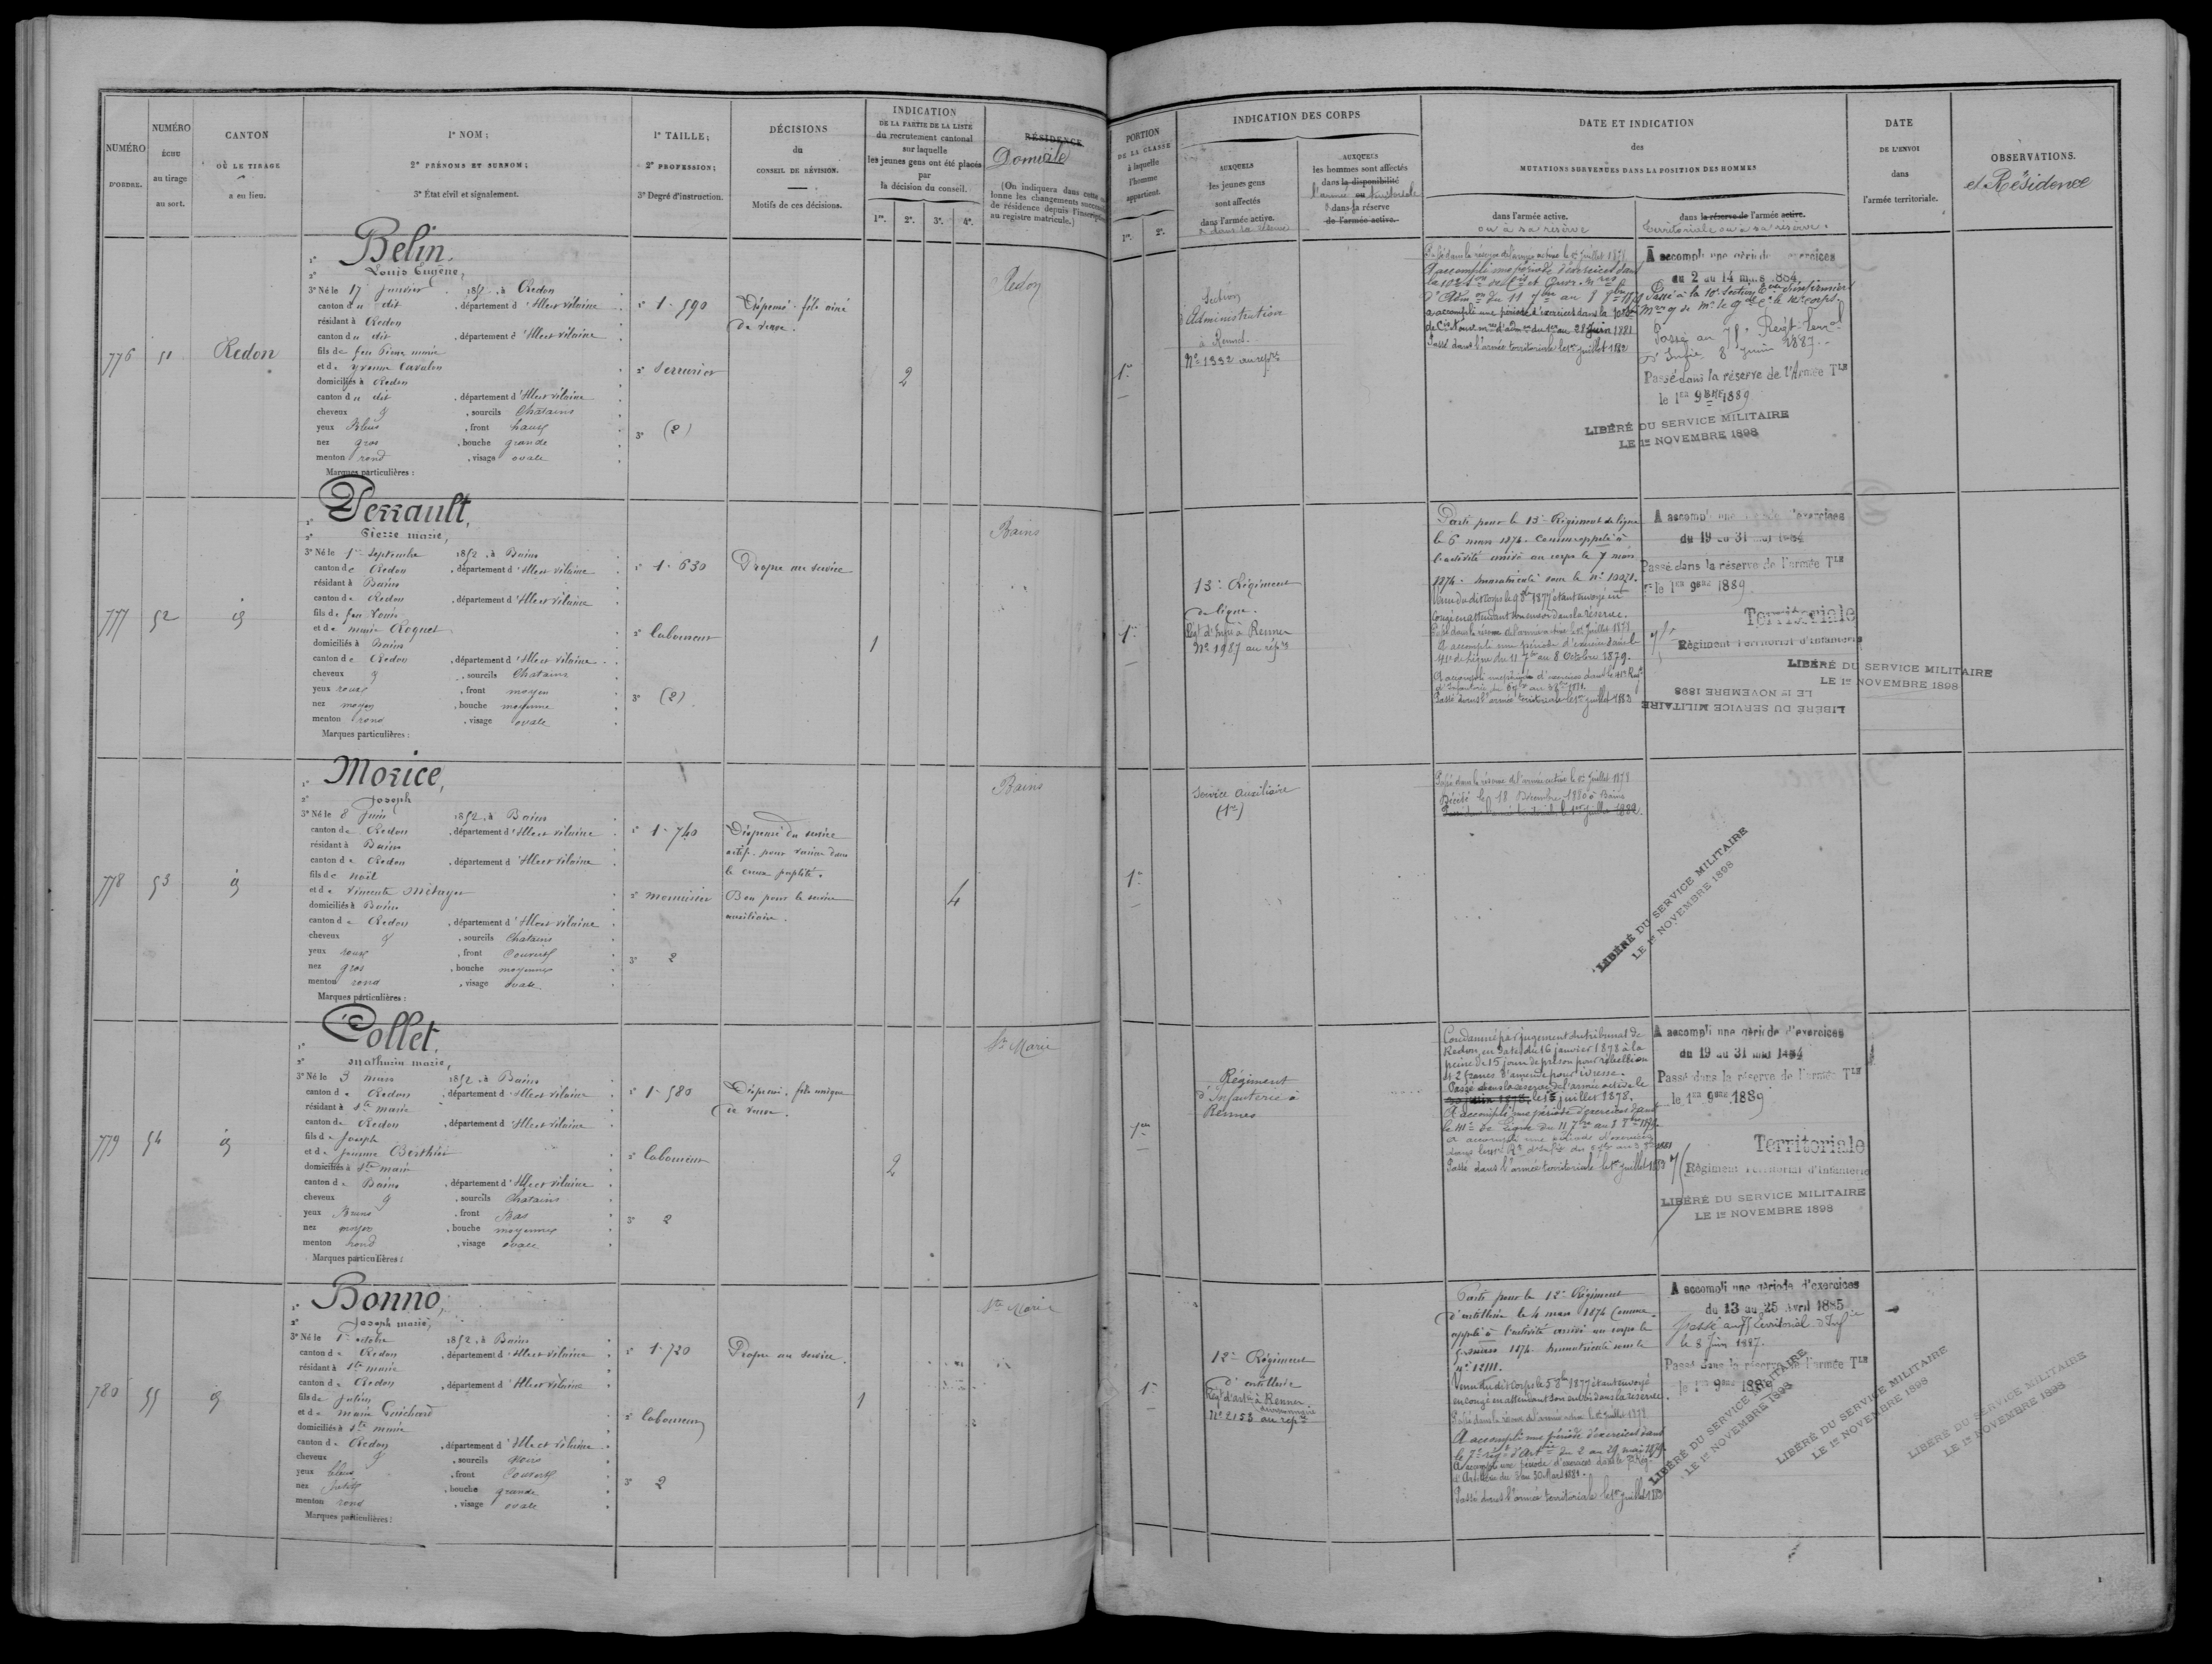 NUMÉRO
D'ORDRE.
NUMÉRO
ÉCHU
au tirage
au sort.
CANTON
OÙ LE TIRAGE
a eu lieu.
1° NOM ;
2° PRÉNOMS ET SURNOM ;
3° État civil et signalement.
1° TAILLE ;
2° PROFESSION ;
3° Degré d'instruction.
DÉCISIONS
du
CONSEIL DE RÉVISION.
Motifs de ces décisions.
INDICATION
DE LA PARTIE DE LA LISTE
du recrutement cantonal
sur laquelle
les jeunes gens ont été placés
par
la décision du conseil.
1re. 2e. 3e. 4e.
RÉSIDENCE
Domicile
(On indiquera dans cette
lonne les changements
de résidence depuis l'inscription
au registre matricule.)
776
51
Redon
1° Belin,
2° Louis Eugène,
3° Né le 17 Janvier 1852, à Redon
canton du dit, département d'Ille et Vilaine
résidant à Redon
canton du dit, département d'Ille et Vilaine
fils de feu Pierre marie
et de Yvonne
domiciliés à Redon
canton du dit, département d'Ille et Vilaine
cheveux, sourcils Chatains
yeux Bleus, front haut
nez gros, bouche grande
menton rond, visage ovale
Marques particulières :
1° 1-590
2° Serrurier
3° (2)
Dispensé - fils aîné
de veuve.
2
Redon
777
52
id
1° Perrault,
2° Pierre marie,
3° Né le 1er Septembre 1852, à Bains
canton de Redon, département d'Ille et Vilaine
résidant à Bains
canton de Redon, département d'Ille et Vilaine
fils de feu Louis
et de marie Roquet
domiciliés à Bains
canton de Redon, département d'Ille et Vilaine
cheveux, sourcils Chatains
yeux roux, front moyen
nez moyen, bouche moyenne
menton rond, visage ovale
Marques particulières :
1° 1-630
2° laboureur
3° (2)
Propre au service
1
Bains
778
53
id
1° Morice,
2° Joseph
3° Né le 8 Juin 1852, à Bains
canton de Redon, département d'Ille et Vilaine
résidant à Bains
canton de Redon, département d'Ille et Vilaine
fils de Noël
et de Vincente Métayer
domiciliés à Bains
canton de Redon, département d'Ille et Vilaine
cheveux, sourcils Chatains
yeux roux, front Couvert
nez gros, bouche moyenne
menton rond, visage ovale
Marques particulières :
1° 1-740
2° menuisier
3° 2
Dispensé du service
actif pour varices dans
le creux poplité.
Bon pour le service
auxiliaire.
4
Bains
779
54
id
1° Collet,
2° Mathurin marie,
3° Né le 3 mars 1852, à Bains
canton de Redon, département d'Ille et Vilaine
résidant à Ste marie
canton de Redon, département d'Ille et Vilaine
fils de Joseph
et de Jeanne Berthier
domiciliés à Ste marie
canton de Bains, département d'Ille et Vilaine
cheveux, sourcils Chatains
yeux Bruns, front Bas
nez moyen, bouche moyenne
menton rond, visage ovale
Marques particulières :
1° 1-580
2° laboureur
3° 2
Dispensé, fils unique
de veuve.
2
Ste Marie
780
55
id
1° Bonno,
2° Joseph marie,
3° Né le 1er octobre 1852, à Bains
canton de Redon, département d'Ille et Vilaine
résidant à Ste marie
canton de Redon, département d'Ille et Vilaine
fils de Julien
et de marie Guichard
domiciliés à Ste marie
canton de Redon, département d'Ille et Vilaine
cheveux, sourcils Noirs
yeux bleus, front Couvert
nez petit, bouche grande
menton rond, visage ovale
Marques particulières :
1° 1-720
2° laboureur
3° 2
Propre au service.
1
Ste Marie
PORTION
DE LA CLASSE
à laquelle
l'homme
appartient.
1re. 2e.
INDICATION DES CORPS
AUXQUELS
les jeunes gens
sont affectés
dans l'armée active.
& dans sa réserve
AUXQUELS
les hommes sont affectés
dans la disponibilité
l'armée ou territoriale
& dans sa réserve
de l'armée active.
DATE ET INDICATION
des
MUTATIONS SURVENUES DANS LA POSITION DES HOMMES
dans l'armée active.
ou à sa réserve
dans la réserve de l'armée active.
territoriale ou à sa réserve.
DATE
DE L'ENVOI
dans
l'armée territoriale.
OBSERVATIONS.
et Résidence
1re
Section
d'Administration
à Rennes.
N° 1332 au rep.re
Passé dans la réserve de l'armée active le 1er Juillet 1878
A accompli une période d'exercices dans
la 10e Son de Cis et Ouvr. Mres
d'Admon du 11 7bre au 8 8bre 1879
a accompli une période d'exercices dans la 10e Son
de Cis et ouv. mres d'admon du 1er au 28 Juin 1881
Passé dans l'armée territoriale le 1er juillet 1882
A accompli une période d'exercices
du 2 au 14 mars 1884
Passé à la 10e Section d'infirmiers
Passé au 75e Régt Terral
d'Infie 8 Juin 1887.
Passé dans la réserve de l'Armée TLE
le 1ER 9BRE 1889
LIBÉRÉ DU SERVICE MILITAIRE
LE 1er NOVEMBRE 1898
1re
13e Régiment
de ligne.
Régt d'Infie à Rennes
N° 1987 au rép.re
Parti pour le 13e Régiment de ligne
le 6 mars 1874. Comme appelé à
l'activité arrivé au corps le 7 mars
1874. Immatriculé sous le n°
Venu du dit corps le 9 8bre 1877 étant envoyé en
congé en attendant son envoi dans la réserve.
Passé dans la réserve de l'armée active le 1er Juillet 1878
A accompli une période d'exercices dans le
41e de Ligne du 11 7bre au 8 Octobre 1879.
A accompli une période d'exercices dans le 41e Régt
d'Infanterie
Passé dans l'armée territoriale le 1er juillet 1883
A accompli une période d'exercices
du 19 au 31 mai 1884
Passé dans la réserve de l'armée TLE
le 1ER 9BRE 1889
Territoriale
75e
Régiment Territorial d'Infanterie
LIBÉRÉ DU SERVICE MILITAIRE
LE 1er NOVEMBRE 1898
LIBÉRÉ DU SERVICE MILITAIRE
LE 1er NOVEMBRE 1898
1re
Service auxiliaire
(1re)
Passé dans la réserve de l'armée active le 1er Juillet 1878
Décédé le 18 Décembre 1880 à Bains
Passé dans l'armée territoriale le 1er juillet 1882
LIBÉRÉ DU SERVICE MILITAIRE
LE 1er NOVEMBRE 1898
1re
Régiment
d'Infanterie à
Rennes
Condamné par jugement du tribunal de
Redon, en date du 16 janvier 1878 à la
peine de 15 jours de prison pour rébellion
et 2 francs d'amende pour ivresse.
Passé dans la réserve de l'armée active le
30 juin 1878, le 15 juillet 1878.
A accompli une période d'exercices dans
le 41e de Ligne du 11 7bre au 8 8bre 1879.
a accompli une période d'exercices
Passé dans l'armée territoriale le 1er juillet
A accompli une période d'exercices
du 19 au 31 mai 1884
Passé dans la réserve de l'armée TLE
le 1ER 9BRE 1889
Territoriale
75
Régiment Territorial d'Infanterie
LIBÉRÉ DU SERVICE MILITAIRE
LE 1er NOVEMBRE 1898
1re
12e Régiment
d'artillerie
Régt d'artie à Rennes
N° 2153 au rép.re
Parti pour le 12e Régiment
d'artillerie le 4 mars 1874 Comme
appelé à l'activité arrivé au corps le
1874. Immatriculé sous le
n° 12111.
Venu du dit Corps le 5 8bre 1877 étant envoyé
en congé en attendant son envoi dans la réserve.
Passé dans la réserve de l'armée active le 1er Juillet 1878
A accompli une période d'exercices dans
le 7e régt d'Artie du 2 au 29 mai 1879
A accompli une période d'exercices dans le 7e Régt
d'Artillerie du 3 au 30 Mars 1881.
Passé dans l'armée territoriale le 1er juillet
A accompli une période d'exercices
du 13 au 25 Avril 1885
Passé au 75 territorial d'Infie
le 8 Juin 1887.
Passé dans la réserve de l'armée TLE
le 1er 9BRE 1889
LIBÉRÉ DU SERVICE MILITAIRE
LE 1er NOVEMBRE 1898
LIBÉRÉ DU SERVICE MILITAIRE
LE 1er NOVEMBRE 1898
LIBÉRÉ DU SERVICE MILITAIRE
LE 1er NOVEMBRE 1898